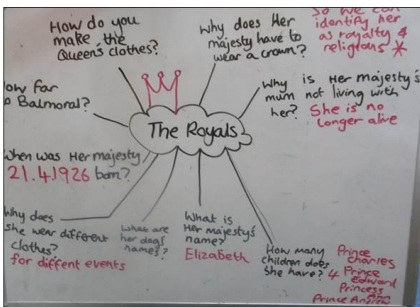 How do you
make the
Queen's clothes?
Why does Her
majesty have to
wear a crown?
So we can
identify her
as royalty &
religions *
How far
to Balmoral?
Why is Her majesty's
mum not living with
her?
She is no
longer alive
The Royals
When was Her majesty
21.4.1926 born?
Why does
she wear different
clothes?
for diffent events
What are
her dog's
names?
What is
Her majesty's
name?
Elizabeth
How many
children does
She have? 4
Prince
Charles
Prince
Edward
Princess
Prince Andrew